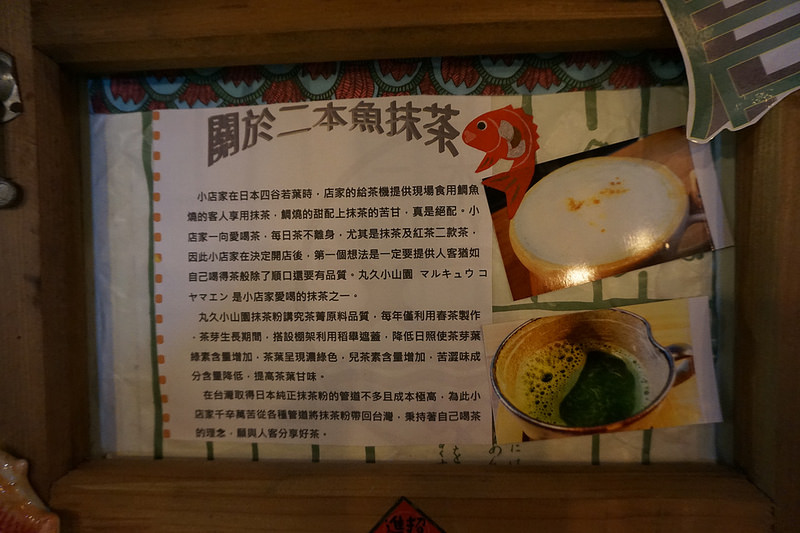 關於二本魚抹茶
小店家在日本四谷若葉時，店家的給茶機提供現場食用鯛魚
燒的客人享用抹茶，鯛燒的甜配上抹茶的苦甘，真是絕配。小
店家一向愛喝茶，每日茶不離身，尤其是抹茶及紅茶二款茶，
因此小店家在決定開店後，第一個想法是一定要提供人客猶如
自己喝得茶般除了順口還要有品質。丸久小山園 マルキュウ コ
ヤマエン 是小店家愛喝的抹茶之一。
丸久小山園抹茶粉講究茶菁原料品質，每年僅利用春茶製作
，茶芽生長期間，搭設棚架利用稻舉遮蓋，降低日照使茶芽葉
綠素含量增加，茶葉呈現濃綠色，兒茶素含量增加，苦澀味成
分含量降低，提高茶葉甘味。
在台灣取得日本純正抹茶粉的管道不多且成本極高，為此小
店家千辛萬苦從各種管道將抹茶粉帶回台灣，秉持著自己喝茶
的理念，願與人客分享好茶。